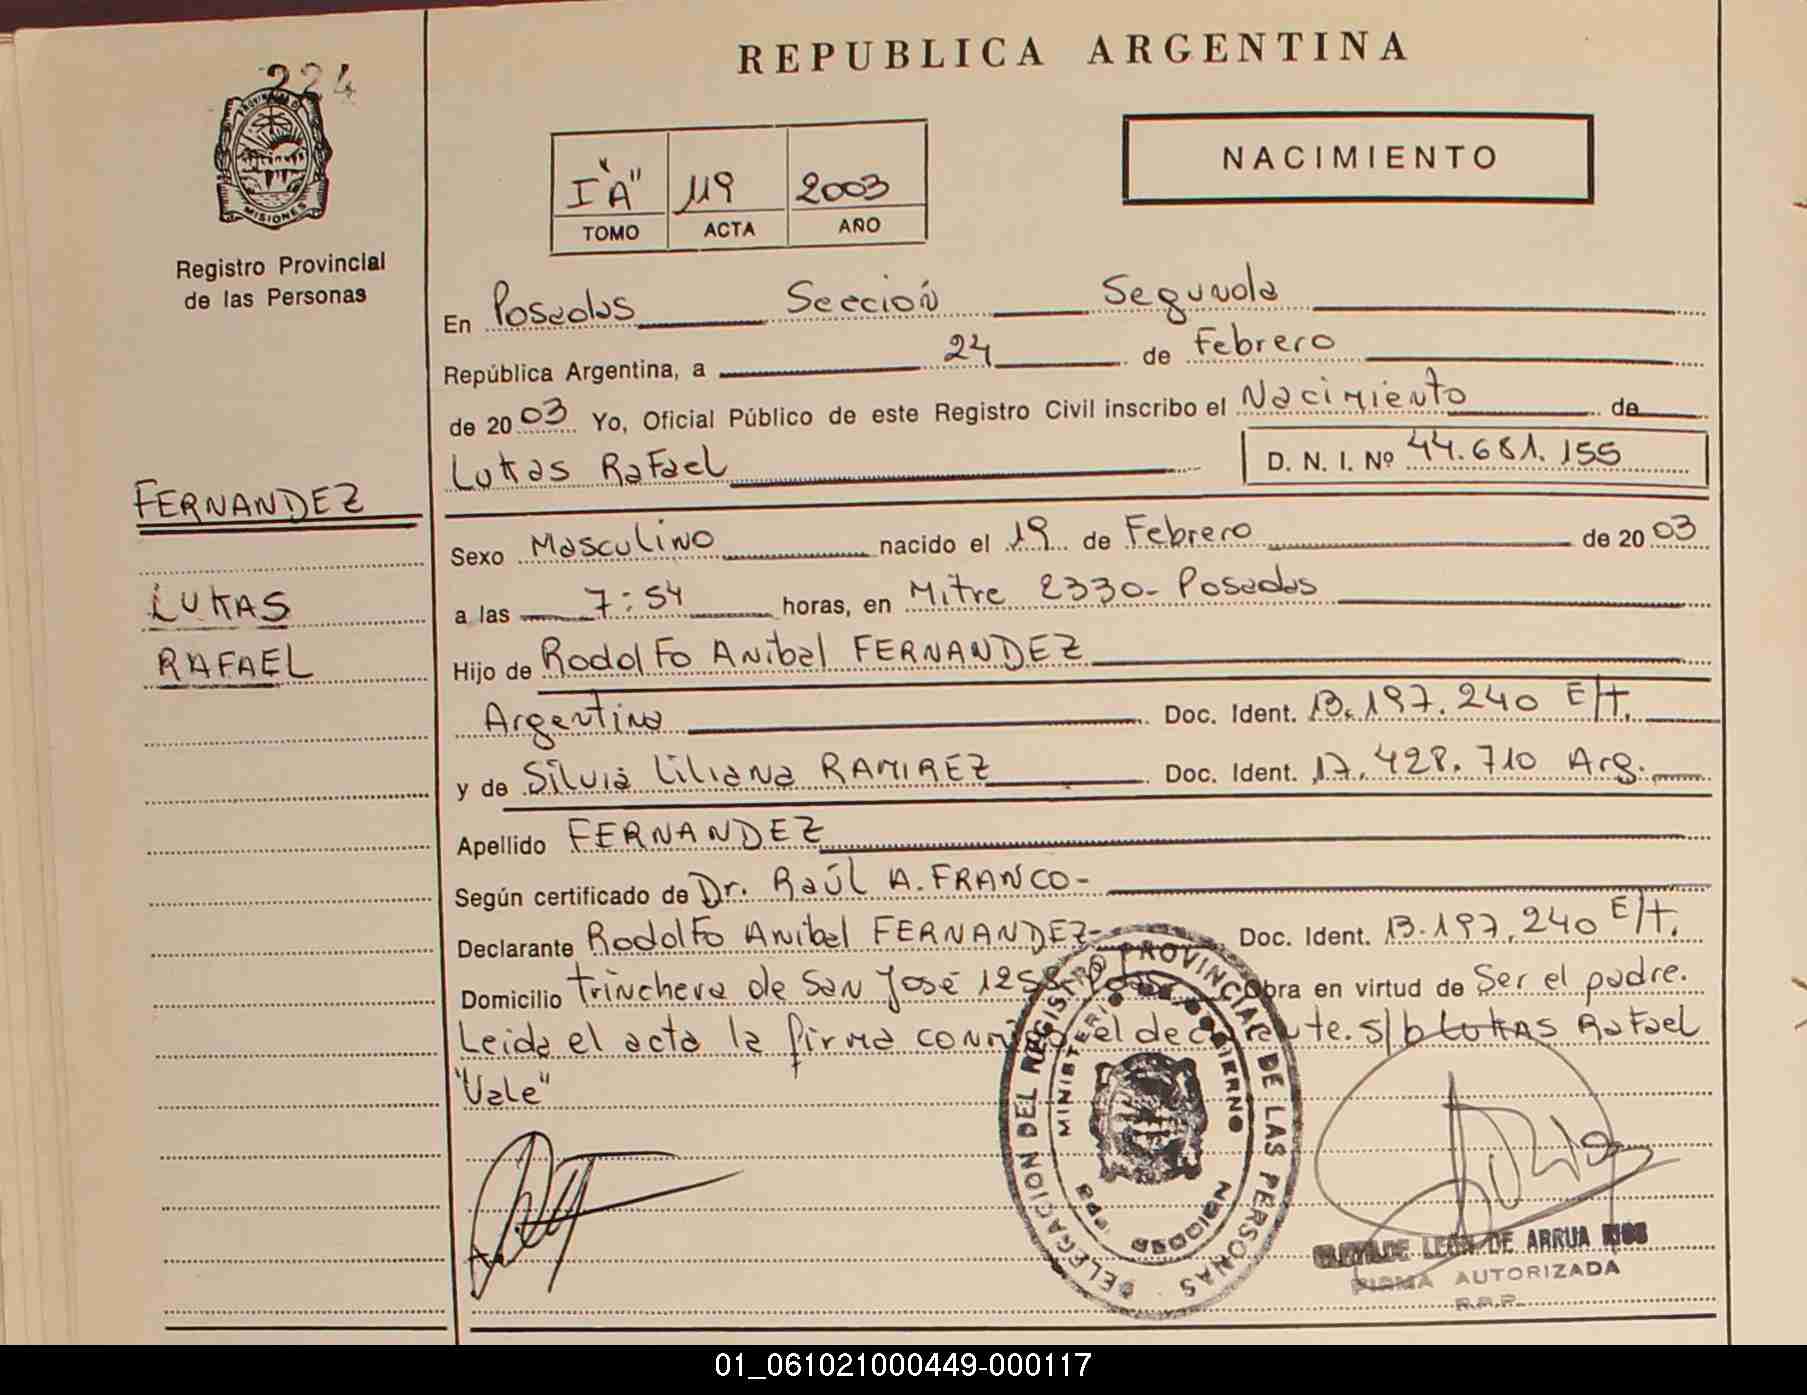 224
PROVINCIA DE
MISIONES
Registro Provincial
de las Personas
FERNANDEZ
LUKAS
RAFAEL
REPUBLICA ARGENTINA
NACIMIENTO
I "A" 119 2003
TOMO ACTA AÑO
En Posadas Sección Segunda
República Argentina, a 24 de Febrero
de 2003 Yo, Oficial Público de este Registro Civil inscribo el Nacimiento de
Lukas Rafael D. N. I. Nº 44.681.155
Sexo Masculino nacido el 19 de Febrero de 2003
a las 7:54 horas, en Mitre 2330- Posadas
Hijo de Rodolfo Anibal FERNANDEZ
Argentina Doc. Ident. 13.197.240 E/T.
y de Silvia Liliana RAMIREZ Doc. Ident. 17.428.710 Arg.
Apellido FERNANDEZ
Según certificado de Dr. Raúl A. FRANCO-
Declarante Rodolfo Anibal FERNANDEZ- Doc. Ident. 13.197.240 E/T.
Domicilio trinchera de San José Obra en virtud de Ser el padre.
Leida el acta la firma el s/b Lukas Rafael
"Vale"
DELEGACION DEL REGISTRO PROVINCIAL DE LAS PERSONAS
MINISTERIO GOBIERNO
LEON DE ARRUA
FIRMA AUTORIZADA
R.P.P.
01_061021000449-000117